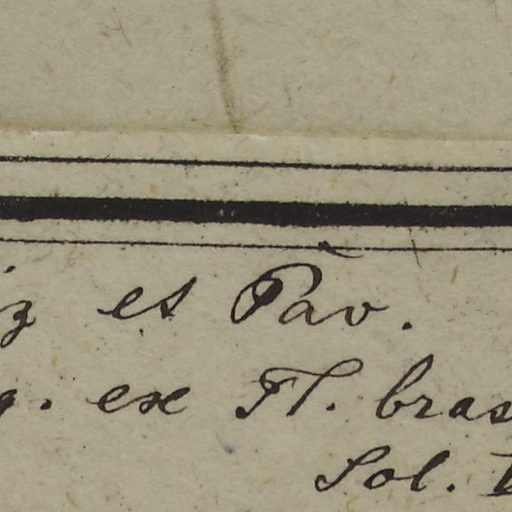 z et Pav.
g. ex Fl. bras
Sol.